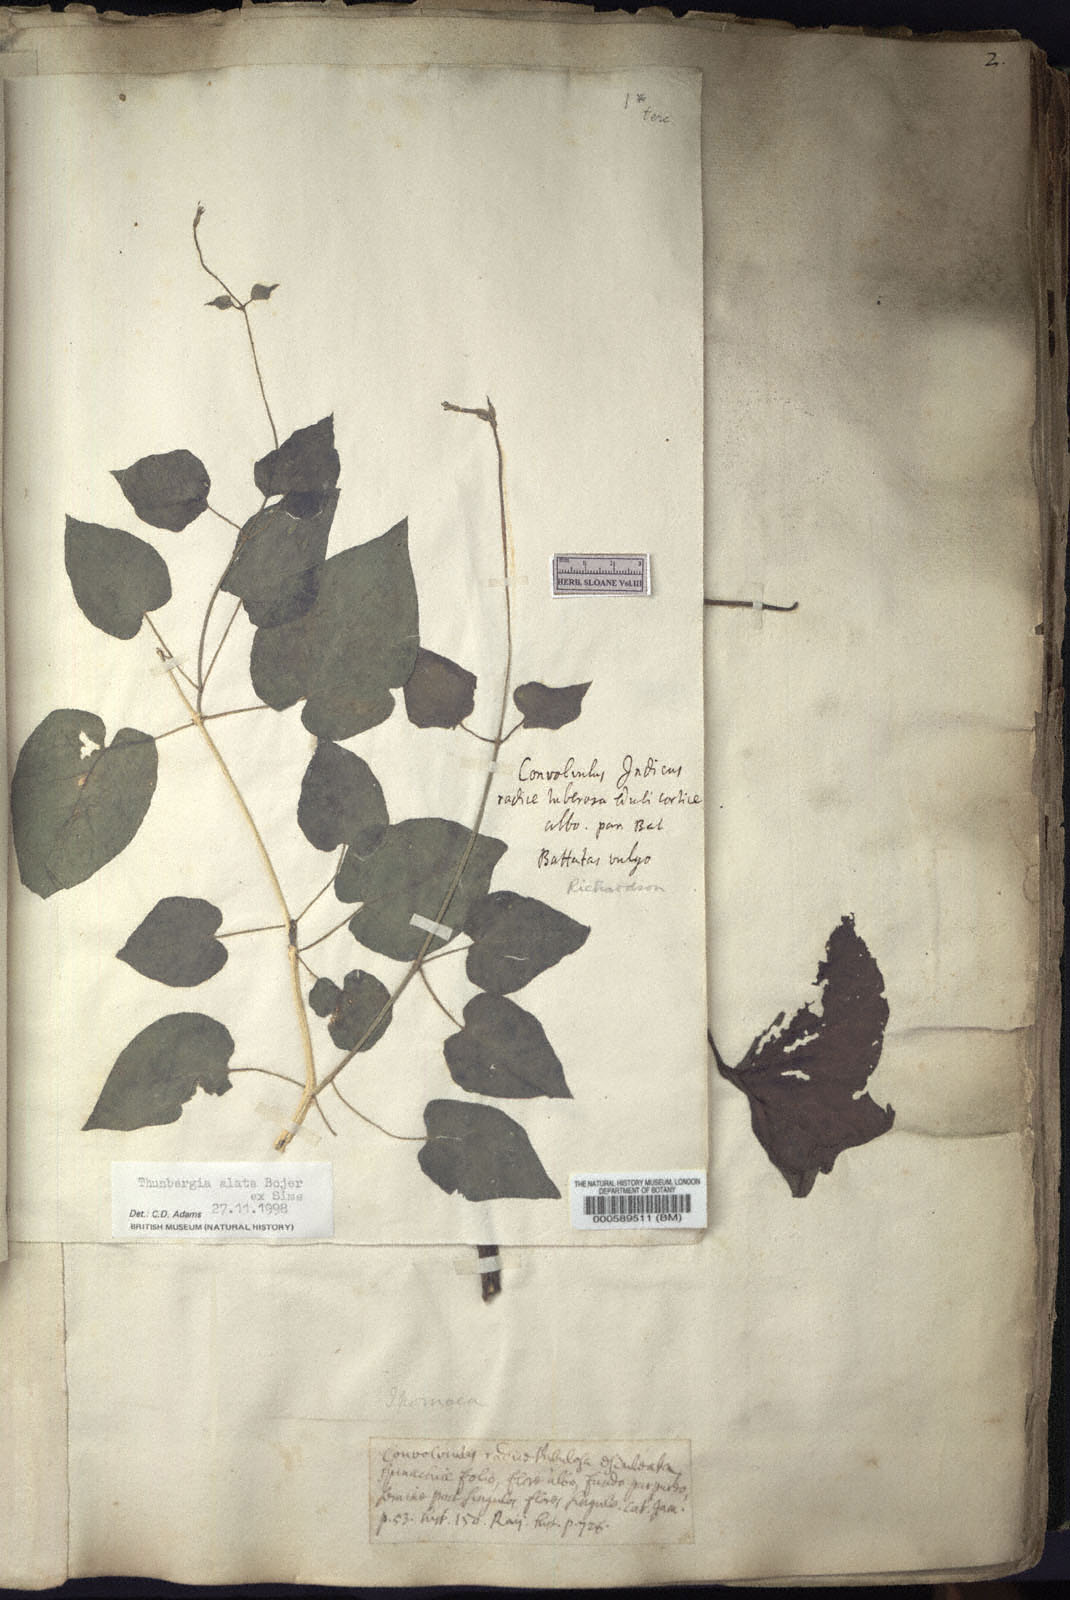 2.
1*
terc
mm 0 1 2 3
HERB. SLOANE Vol.III
Convolvulus Indicus
radice tuberosa eduli cortice
albo. par. Bat
Battatas vulgo
Richardson
Thunbergia alata Bojer
ex Sims
Det.: C.D. Adams 27.11.1998
BRITISH MUSEUM (NATURAL HISTORY)
THE NATURAL HISTORY MUSEUM, LONDON
DEPARTMENT OF BOTANY
000589511 (BM)
Ipomoea
Convolvulus radice tuberosa esculenta
Spinachiae folio, flore albo, fundo purpureo,
semine post singulos flores singulo. Cat. Jam.
p.53. hist. 150. Raij. hist. p.728.